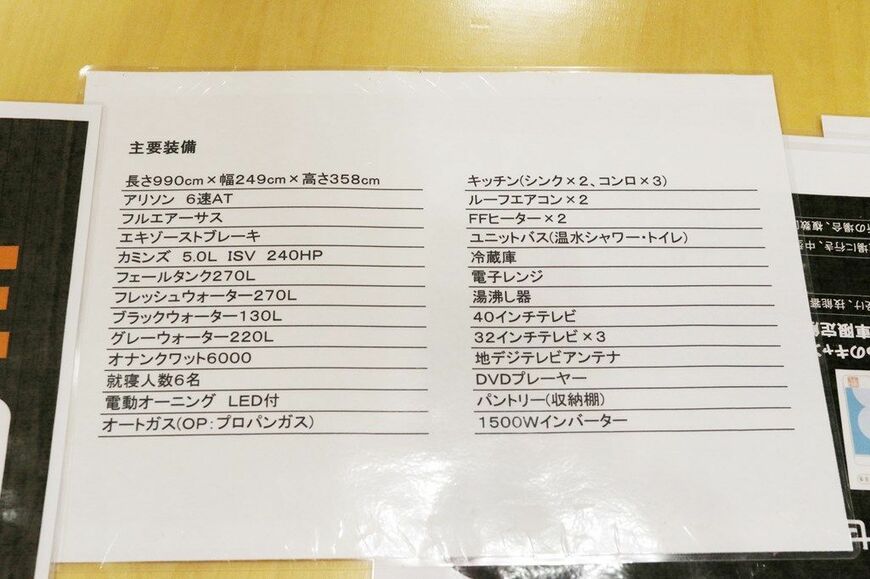 主要装備
長さ990cm×幅249cm×高さ358cm
アリソン 6速AT
フルエアーサス
エキゾーストブレーキ
カミンズ 5.0L ISV 240HP
フェールタンク270L
フレッシュウォーター270L
ブラックウォーター130L
グレーウォーター220L
オナンクワット6000
就寝人数6名
電動オーニング LED付
オートガス(OP:プロパンガス)
キッチン(シンク×2、コンロ×3)
ルーフエアコン×2
FFヒーター×2
ユニットバス(温水シャワー・トイレ)
冷蔵庫
電子レンジ
湯沸し器
40インチテレビ
32インチテレビ×3
地デジテレビアンテナ
DVDプレーヤー
パントリー(収納棚)
1500Wインバーター